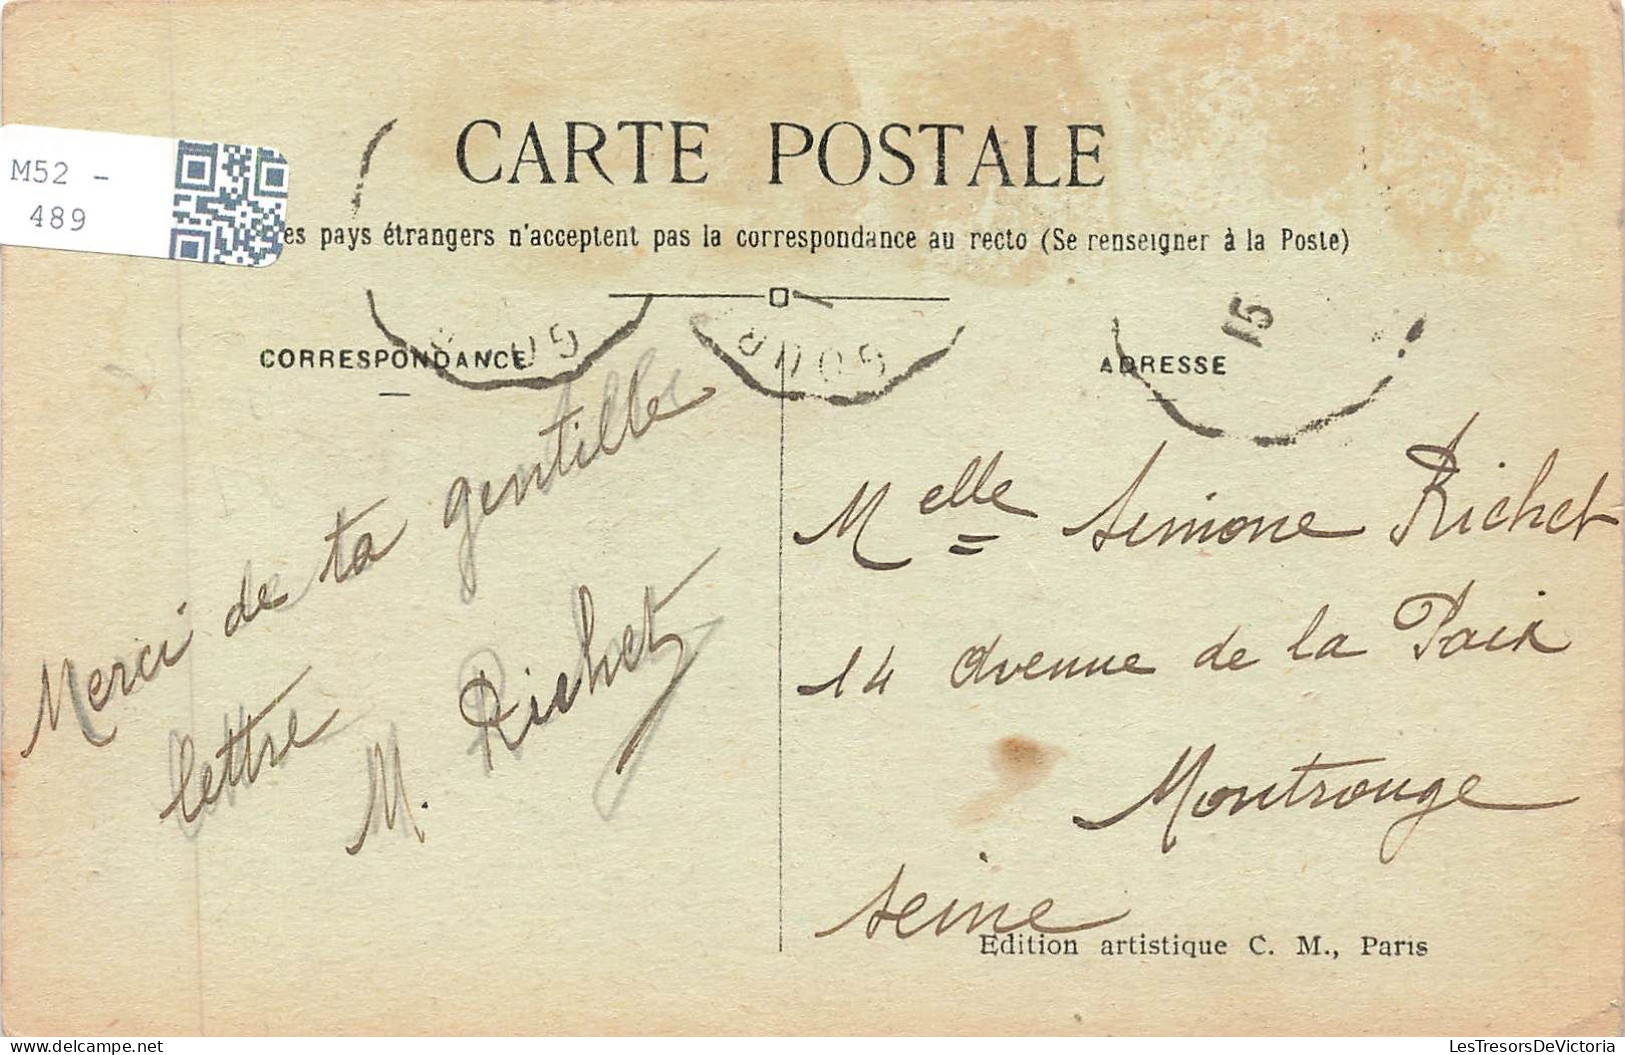 CARTE POSTALE
M52 -
489
es pays étrangers n'acceptent pas la correspondance au recto (Se renseigner à la Poste)
CORRESPONDANCE
ADRESSE
15
Merci de ta gentille
lettre
M. Richet
Melle Simone Richet
14 avenue de la Paix
Montrouge
Seine
Edition artistique C. M., Paris
LesTresorsDeVictoria